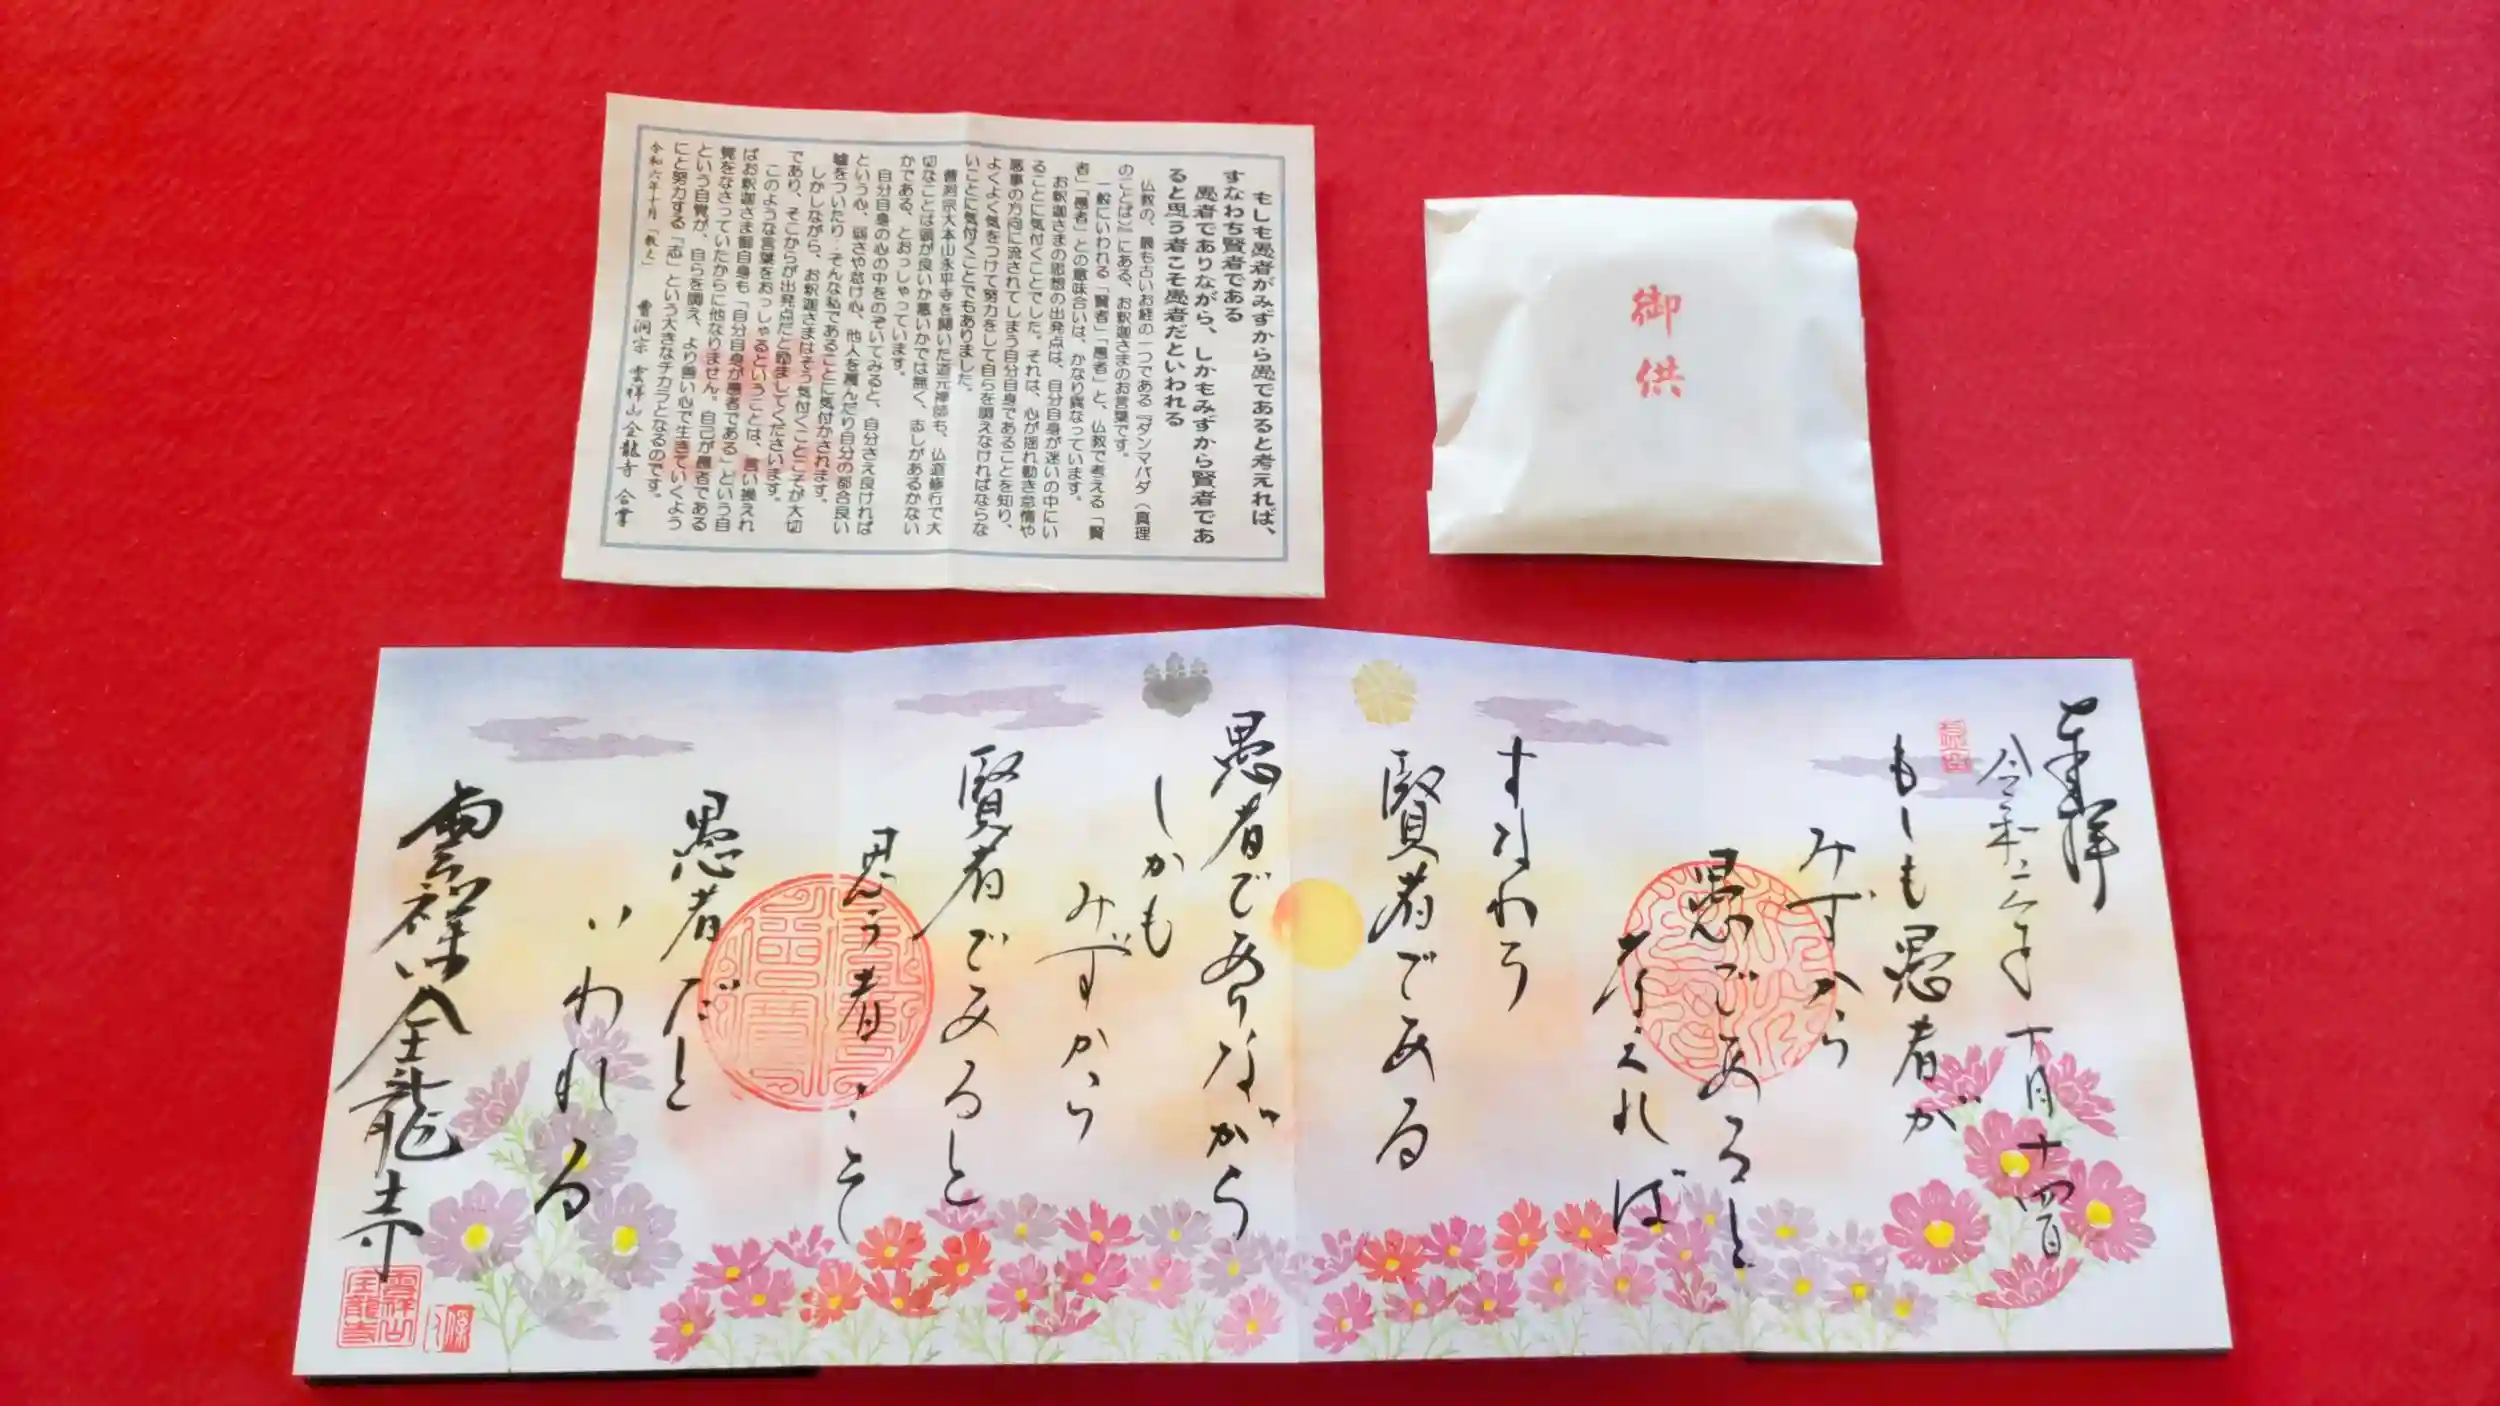 もしも愚者がみずから愚であると考えれば、
すなわち賢者である
愚者でありながら、しかもみずから賢者であ
ると思う者こそ愚者だといわれる
仏教の、最も古いお経の一つである『ダンマパダ（真理
のことば）』にある、お釈迦さまのお言葉です。
一般にいわれる「賢者」「愚者」と、仏教で考える「賢
者」「愚者」との意味合いは、かなり異なっています。
お釈迦さまの思想の出発点は、自分自身が迷いの中にい
ることに気付くことでした。それは、心が揺れ動き怠惰や
悪事の方向に流されてしまう自分自身であることを知り、
よくよく気をつけて努力をして自らを調えなければならな
いことに気付くことでもありました。
曹洞宗大本山永平寺を開いた道元禅師も、仏道修行で大
切なことは頭が良いか悪いかでは無く、志しがあるかない
かである、とおっしゃっています。
自分自身の心の中をのぞいてみると、自分さえ良ければ
という心、弱さや怠け心、他人を羨んだり自分の都合良い
嘘をついたり…そんな私であることに気付かされます。
しかしながら、お釈迦さまはそう気付くことこそが大切
であり、そこからが出発点だと励ましてくださいます。
このような言葉をおっしゃるということは、言い換えれ
ばお釈迦さま御自身も「自分自身が愚者である」という自
覚をなさっていたからに他なりません。自己が愚者である
という自覚が、自らを調え、より善い心で生きていくよう
にと努力する「志」という大きなチカラとなるのです。
令和六年十月「教え」 曹洞宗 雲祥山全龍寺 合掌
御供
奉拝
令和六年十月十四日
もしも愚者が
みずから
愚であると
考えれば
すなわち
賢者である
愚者でありながら
しかも
みずから
賢者であると
思う者こそ
愚者だと
いわれる
雲祥山全龍寺
雲祥山
全龍寺